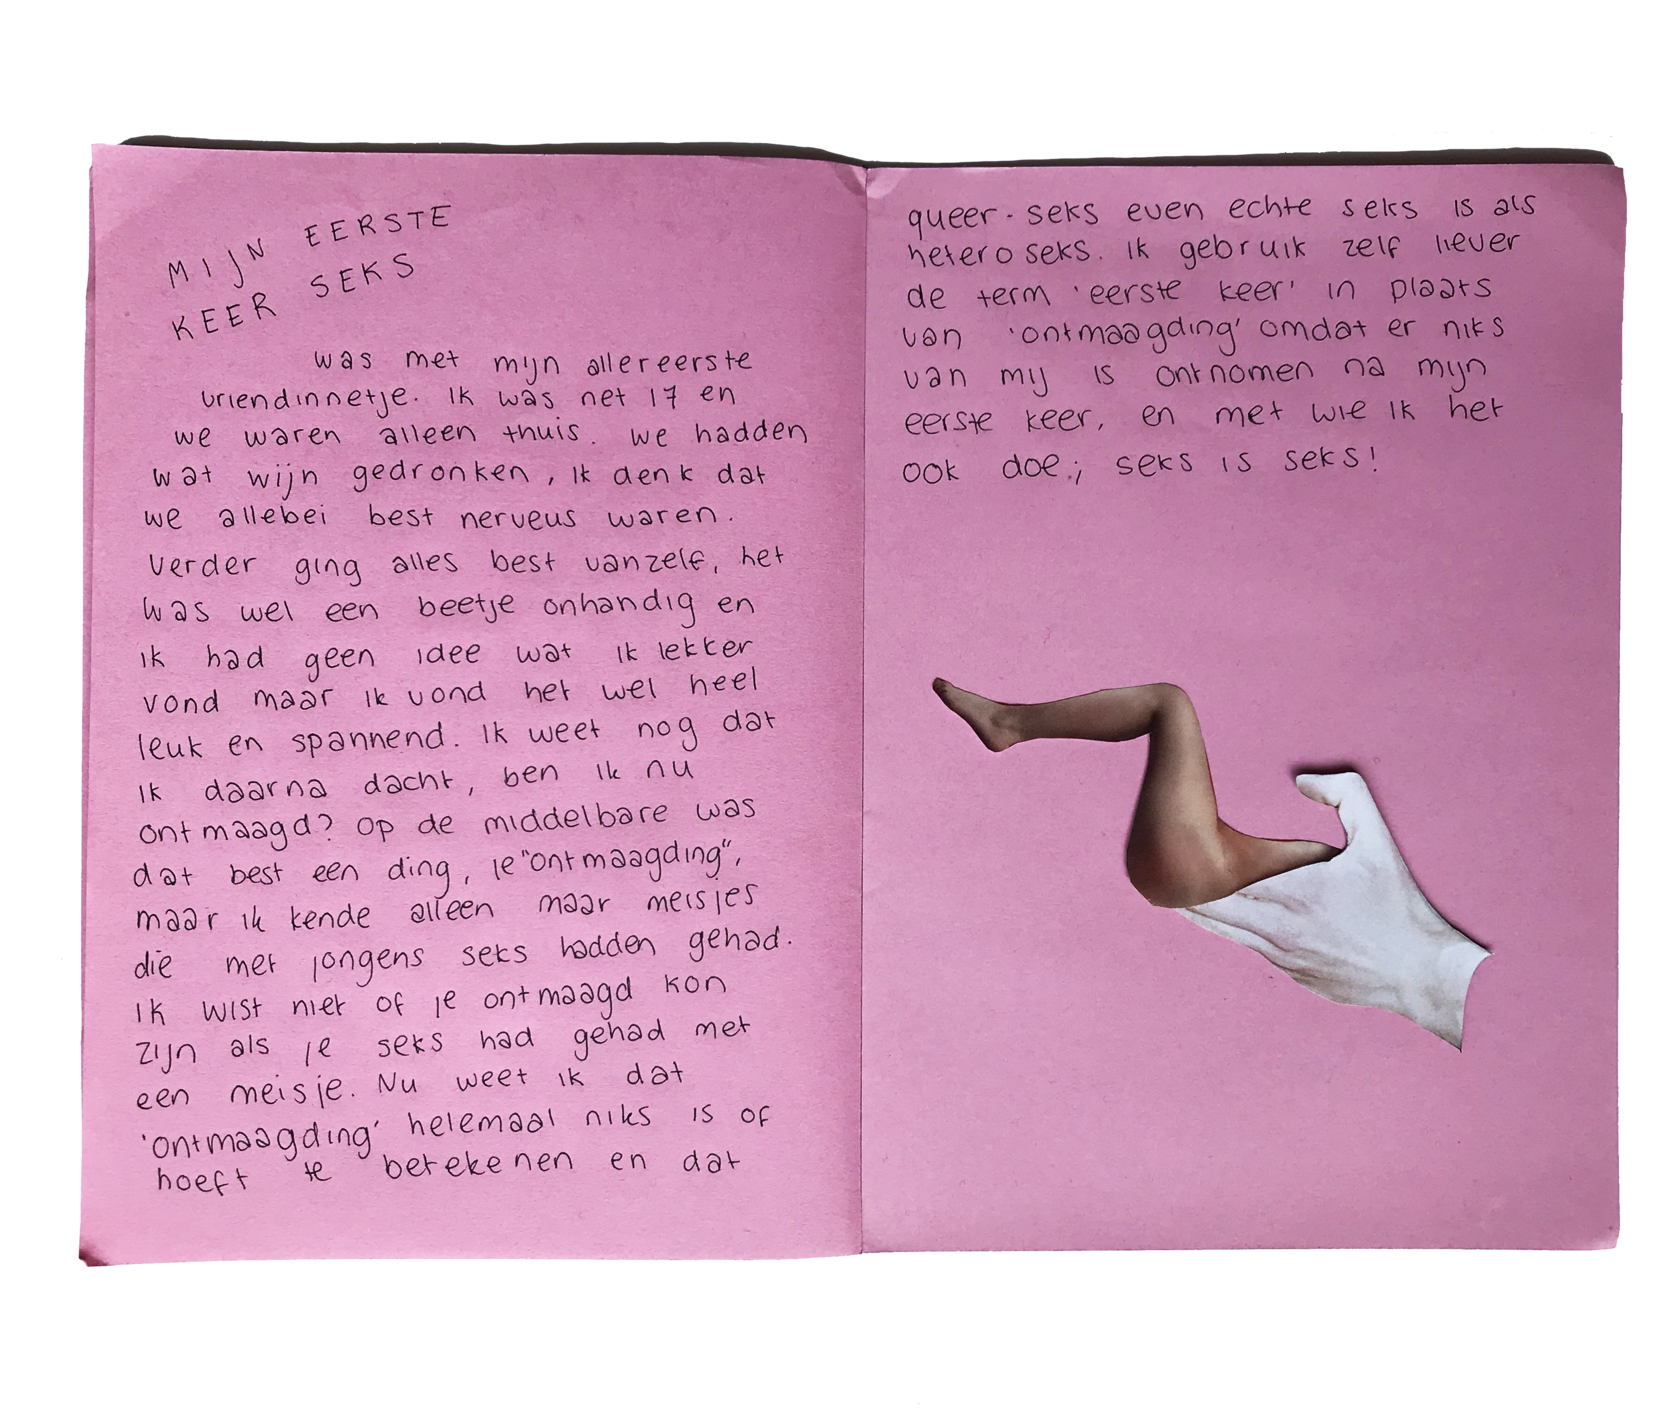 MIJN EERSTE
KEER SEKS
was met mijn allereerste
vriendinnetje. Ik was net 17 en
we waren alleen thuis. We hadden
wat wijn gedronken, ik denk dat
we allebei best nerveus waren.
Verder ging alles best vanzelf, het
was wel een beetje onhandig en
ik had geen idee wat ik lekker
vond maar ik vond het wel heel
leuk en spannend. Ik weet nog dat
ik daarna dacht, ben ik nu
ontmaagd? Op de middelbare was
dat best een ding, je "ontmaagding",
maar ik kende alleen maar meisjes
die met jongens seks hadden gehad.
Ik wist niet of je ontmaagd kon
zijn als je seks had gehad met
een meisje. Nu weet ik dat
'ontmaagding' helemaal niks is of
hoeft te betekenen en dat
queer-seks even echte seks is als
hetero seks. Ik gebruik zelf liever
de term 'eerste keer' in plaats
van 'ontmaagding' omdat er niks
van mij is ontnomen na mijn
eerste keer, en met wie ik het
ook doe; seks is seks!